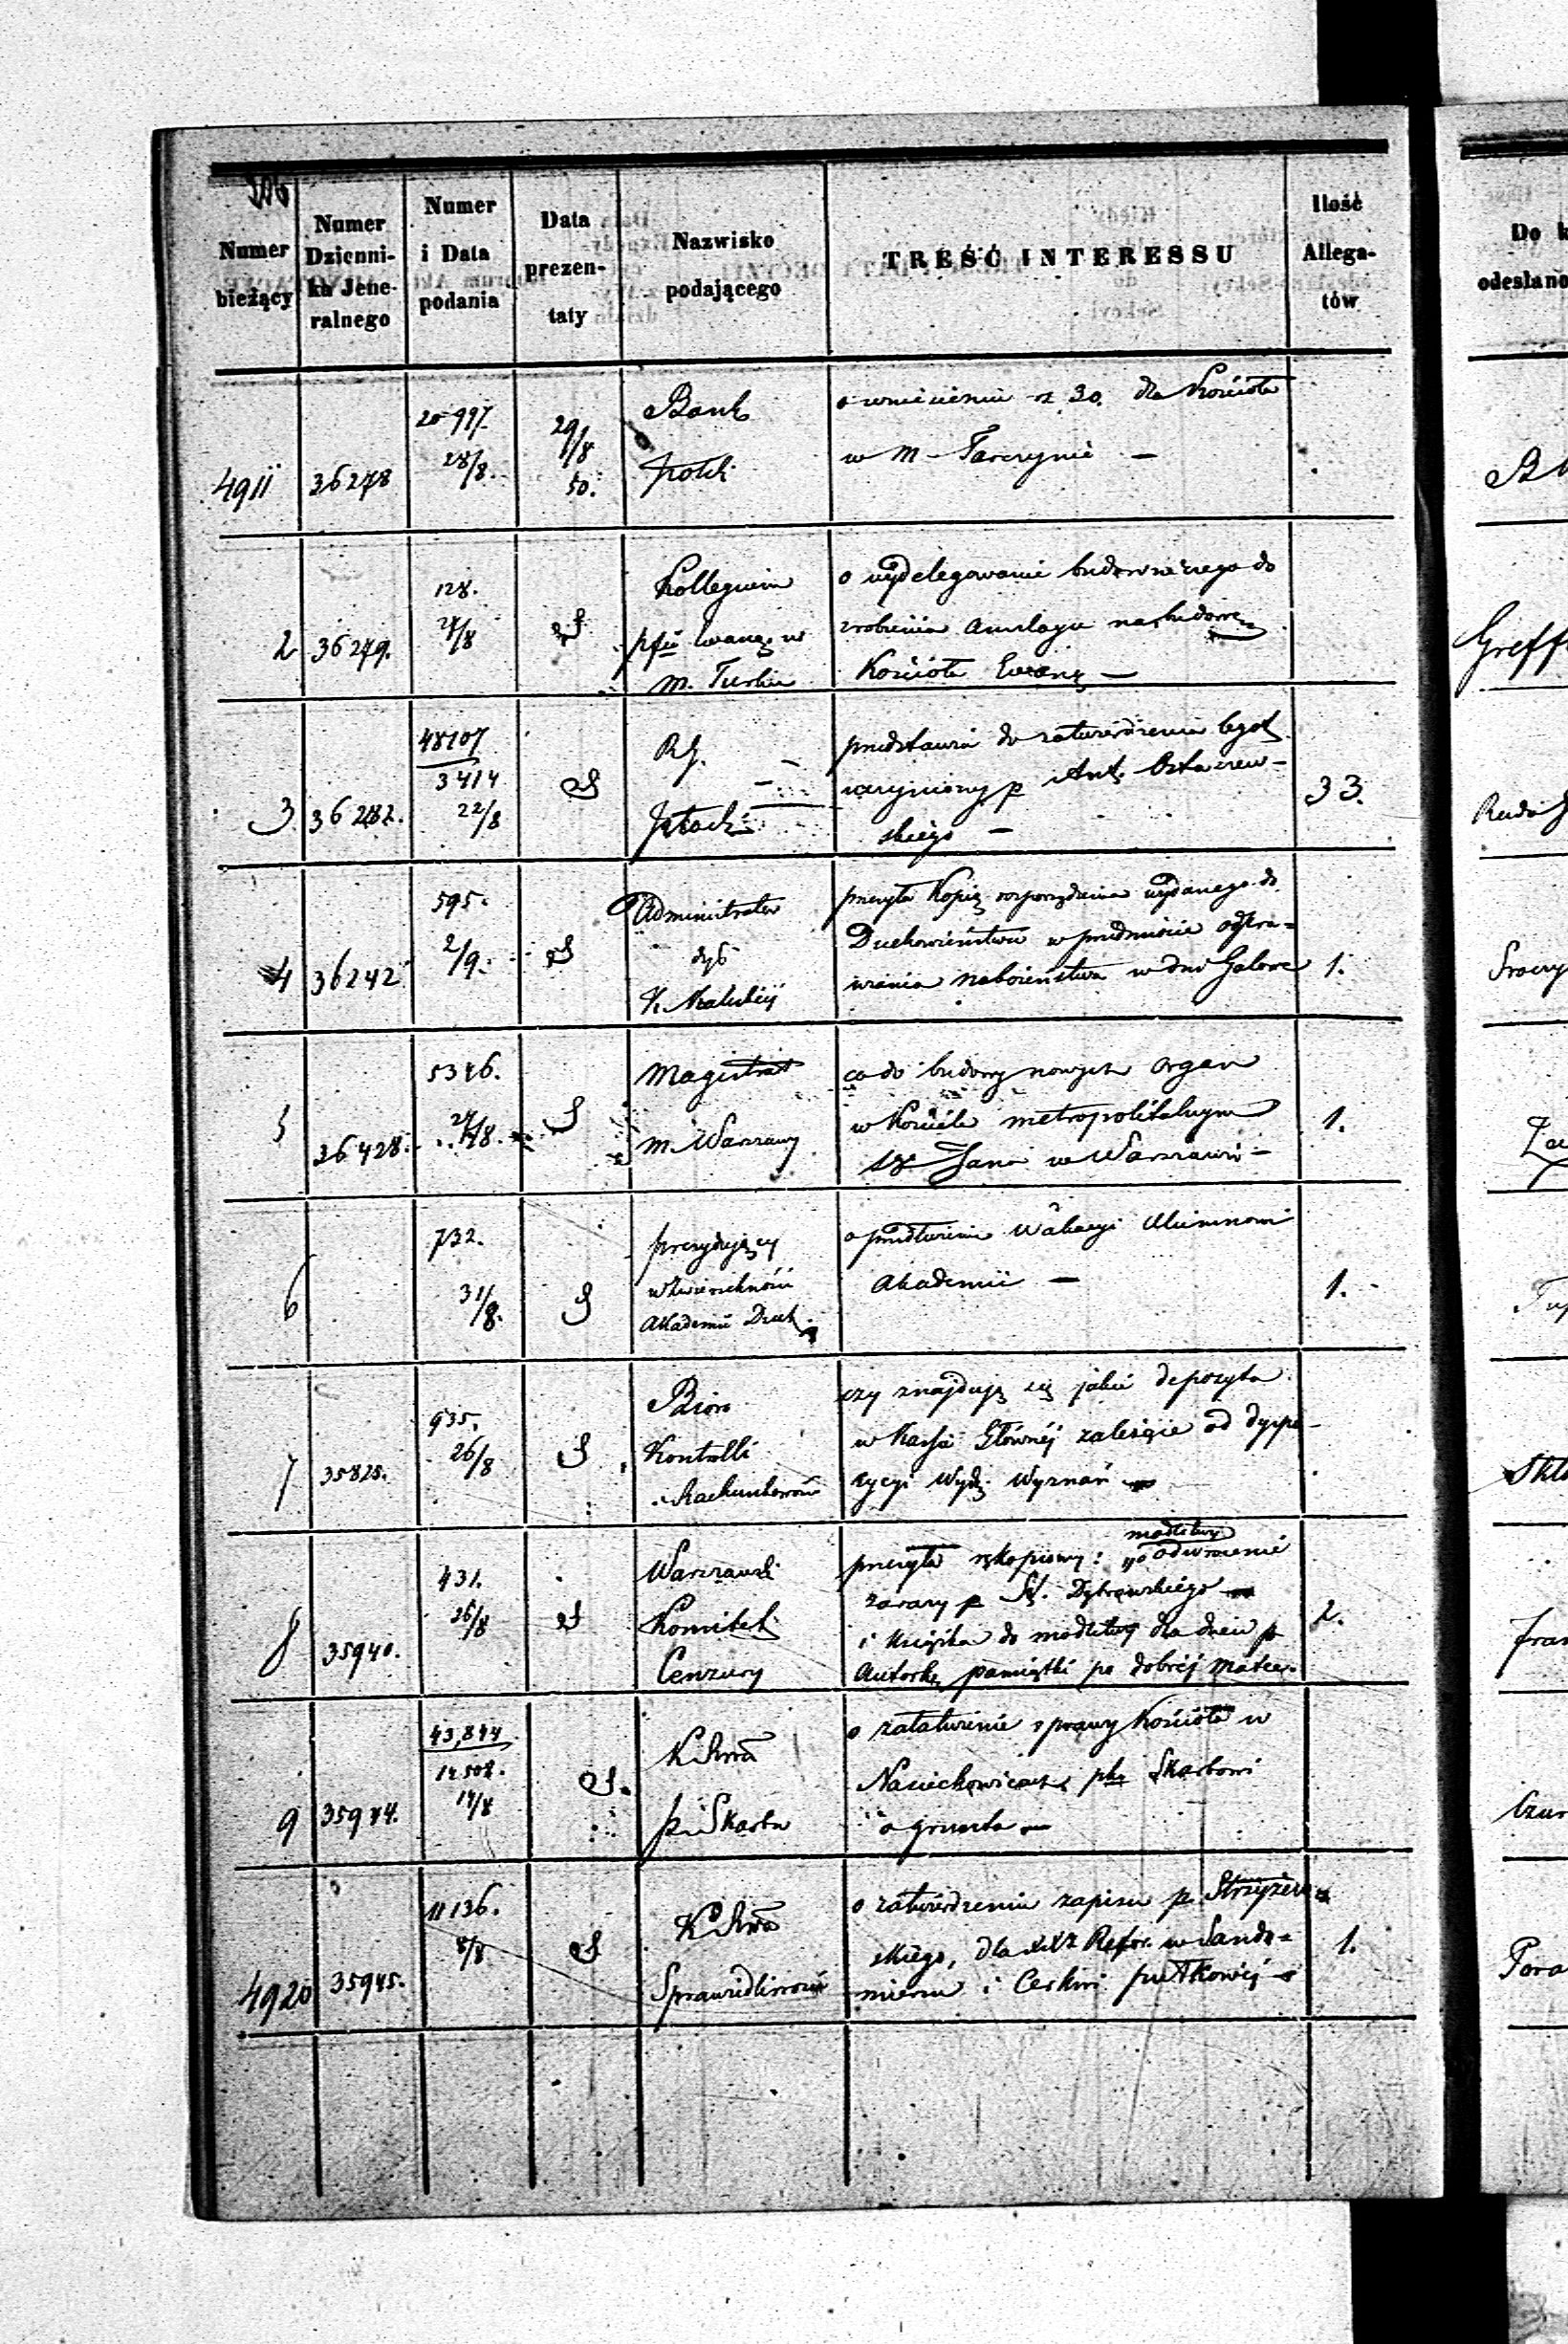 306
Numer bieżący
Numer Dzienni-ka Jene-ralnego
Numer i Data podania
Data prezen-taty
Nazwisko podającego
TREŚĆ INTERESSU
Ilość Allega-tów
Do k
odesłano
4911 36278 20997. 28/8. 29/8 50. Bank Polski
o wniesieniu rs 30. dla Kościoła
w m. Tarczynie —
2 36279. 128. 27/8 Kollegium
Ewang. w
m. Turku
o wydelegowanie budowniczego do
zrobienia anszlagu na budowę
Kościoła Ewang —
Greff
3 36282. 48107 3414 22/8 RG. Płocki
przedstawia do zatwierdzenia legat
uczyniony p Ant. Ostaszew-
skiego —
33.
4 36242 595. 2/9. Administrator
dyec
K. Kaliskiej
przesyła Kopię rozporządzenia wydanego do
Duchowieństwa w przedmiocie odpra-
wiania nabożeństwa w dni Galowe
1.
5 36428. 5346. 27/8. Magistrat
m. Warszawy
co do budowy nowych organ
w Kościele metropolitalnym
Sgo Jana w Warszawie —
1.
6 732. 31/8. prezydujący
w Zwierzchności
Akademii Duch.
o przedłużenie Wakacyi Alumnowi
Akademii —
1.
7 35825. 935. 26/8 Bióro
Kontrolli
Rachunkowéj
czy znajdują się jakie depozyta
w Kassie Głównéj zależące od dyspo-
zycyi Wydz. Wyznań
8 35940. 431. 26/8 Warszawski
Komitet
Cenzury
przesyła rękopismy: modlitwy o odwrócenie
zarazy p Dąbrowskiego
i Książka do modlitwy dla dzieci p
Autorkę pamiątki po dobréj matce.
2.
9 35944. 43,844 12508. 14/8 K Rwa
P. i Skarbu
o załatwienie sprawy Kościoła w
Skarbowi
o grunta —
4920 35945. 11136. 8/8 K Rwa
Sprawiedliwości
o zatwierdzenie zapisu p. Strzyżew-
skiego, dla XX Refor. w Sando-
mierzu i Cerkwi pułkowéj
1.